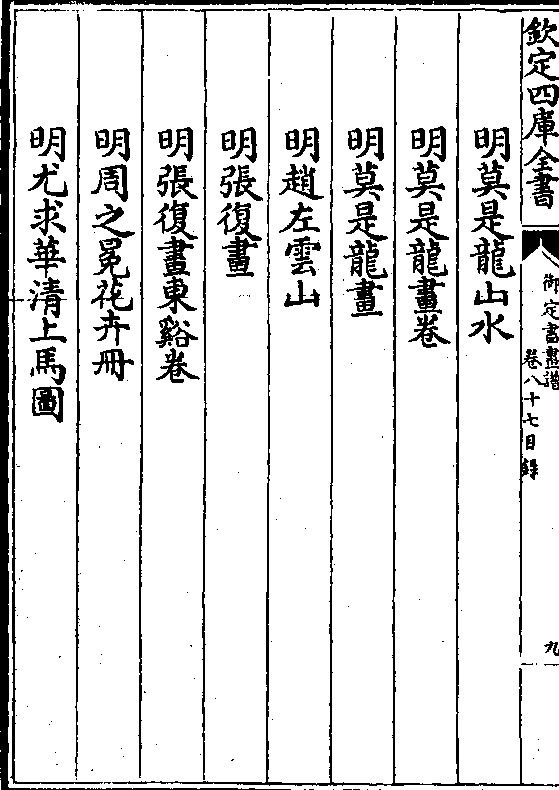 欽定四庫全書
御定書畫譜
卷八十七目錄
九
明莫是龍山水
明莫是龍畫卷
明莫是龍畫
明趙左雲山
明張復畫
明張復畫東谿卷
明周之冕花卉冊
明尤求華清上馬圖